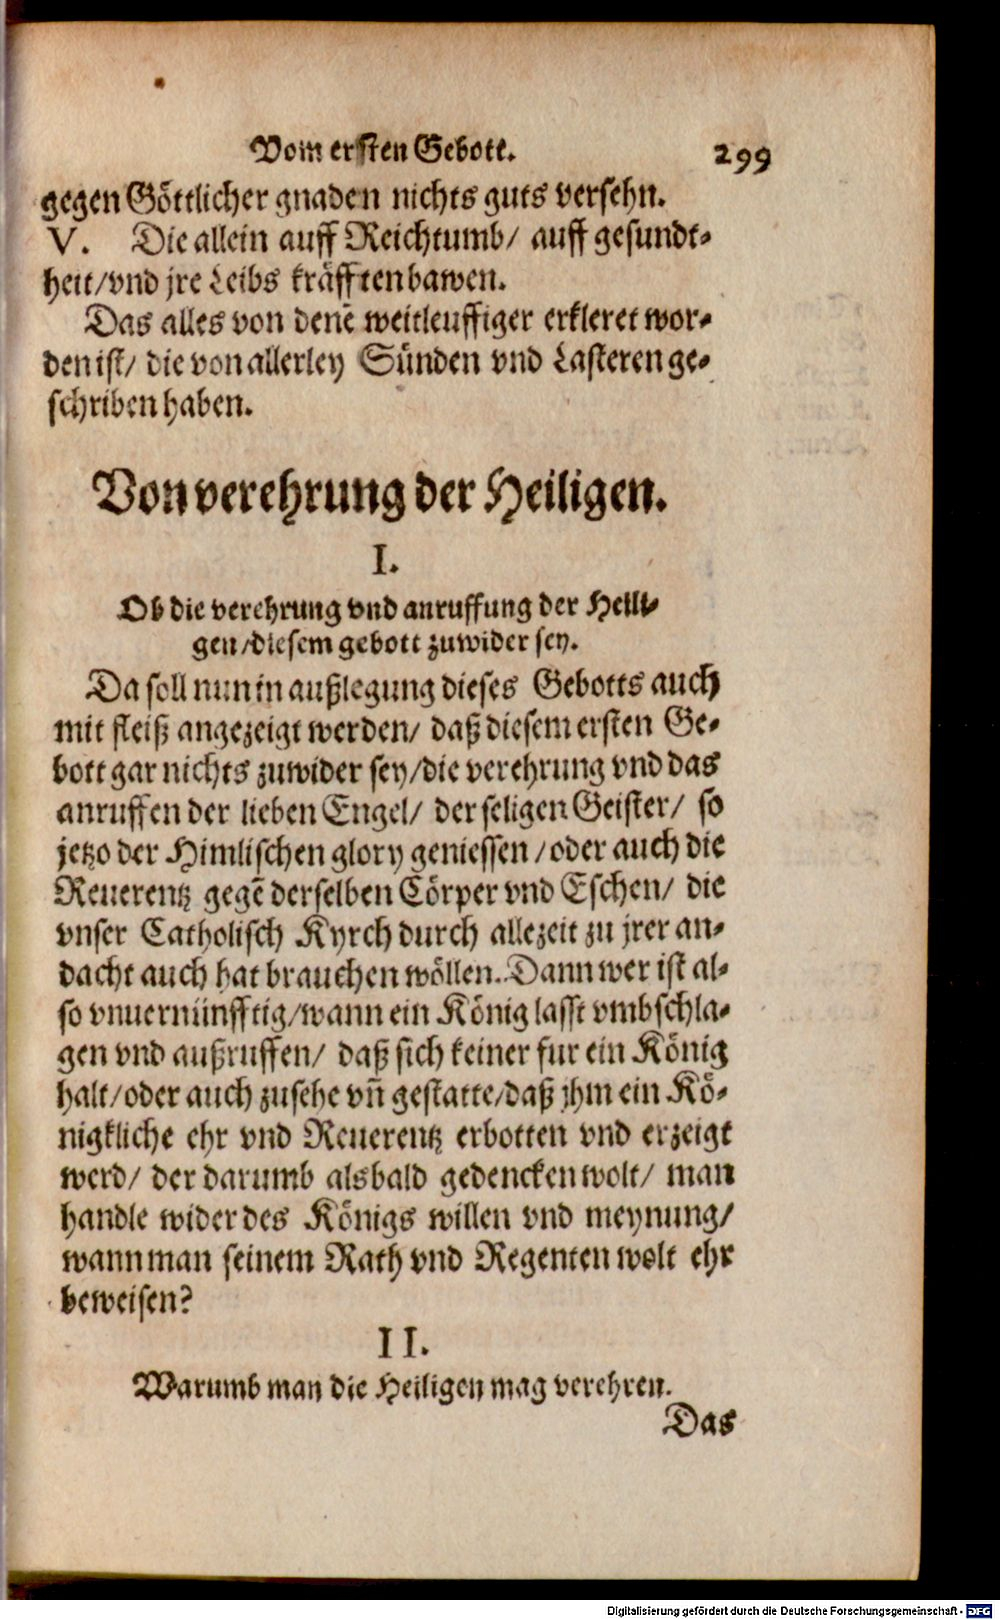 Vom ersten Gebott. 299
gegen Göttlicher gnaden nichts guts versehn.
V. Die allein auff Reichtumb/ auff gesundt-
heit/vnd jre Leibs kräfften bawen.
Das alles von denē weitleuffiger erkleret wor-
den ist/ die von allerley Sünden vnd Lasteren ge-
schriben haben.
Von verehrung der Heiligen.
I.
Ob die verehrung vnd anruffung der Heili-
gen/diesem gebott zuwider sey.
Da soll nun in außlegung dieses Gebotts auch
mit fleiß angezeigt werden/ daß diesem ersten Ge-
bott gar nichts zuwider sey/die verehrung vnd das
anruffen der lieben Engel/ der seligen Geister/ so
jetzo der Himlischen glory geniessen/oder auch die
Reuerentz gegē derselben Cörper vnd Eschen/ die
vnser Catholisch Kyrch durch allezeit zu jrer an-
dacht auch hat brauchen wöllen. Dann wer ist al-
so vnuernünfftig/wann ein König lasst vmbschla-
gen vnd außruffen/ daß sich keiner fur ein König
halt/oder auch zusehe vn̄ gestatte/daß jhm ein Kö-
nigkliche ehr vnd Reuerentz erbotten vnd erzeigt
werd/ der darumb alsbald gedencken wolt/ man
handle wider des Königs willen vnd meynung/
wann man seinem Rath vnd Regenten wolt ehr
beweisen?
II.
Warumb man die Heiligen mag verehren.
Das
Digitalisierung gefördert durch die Deutsche Forschungsgemeinschaft - DFG